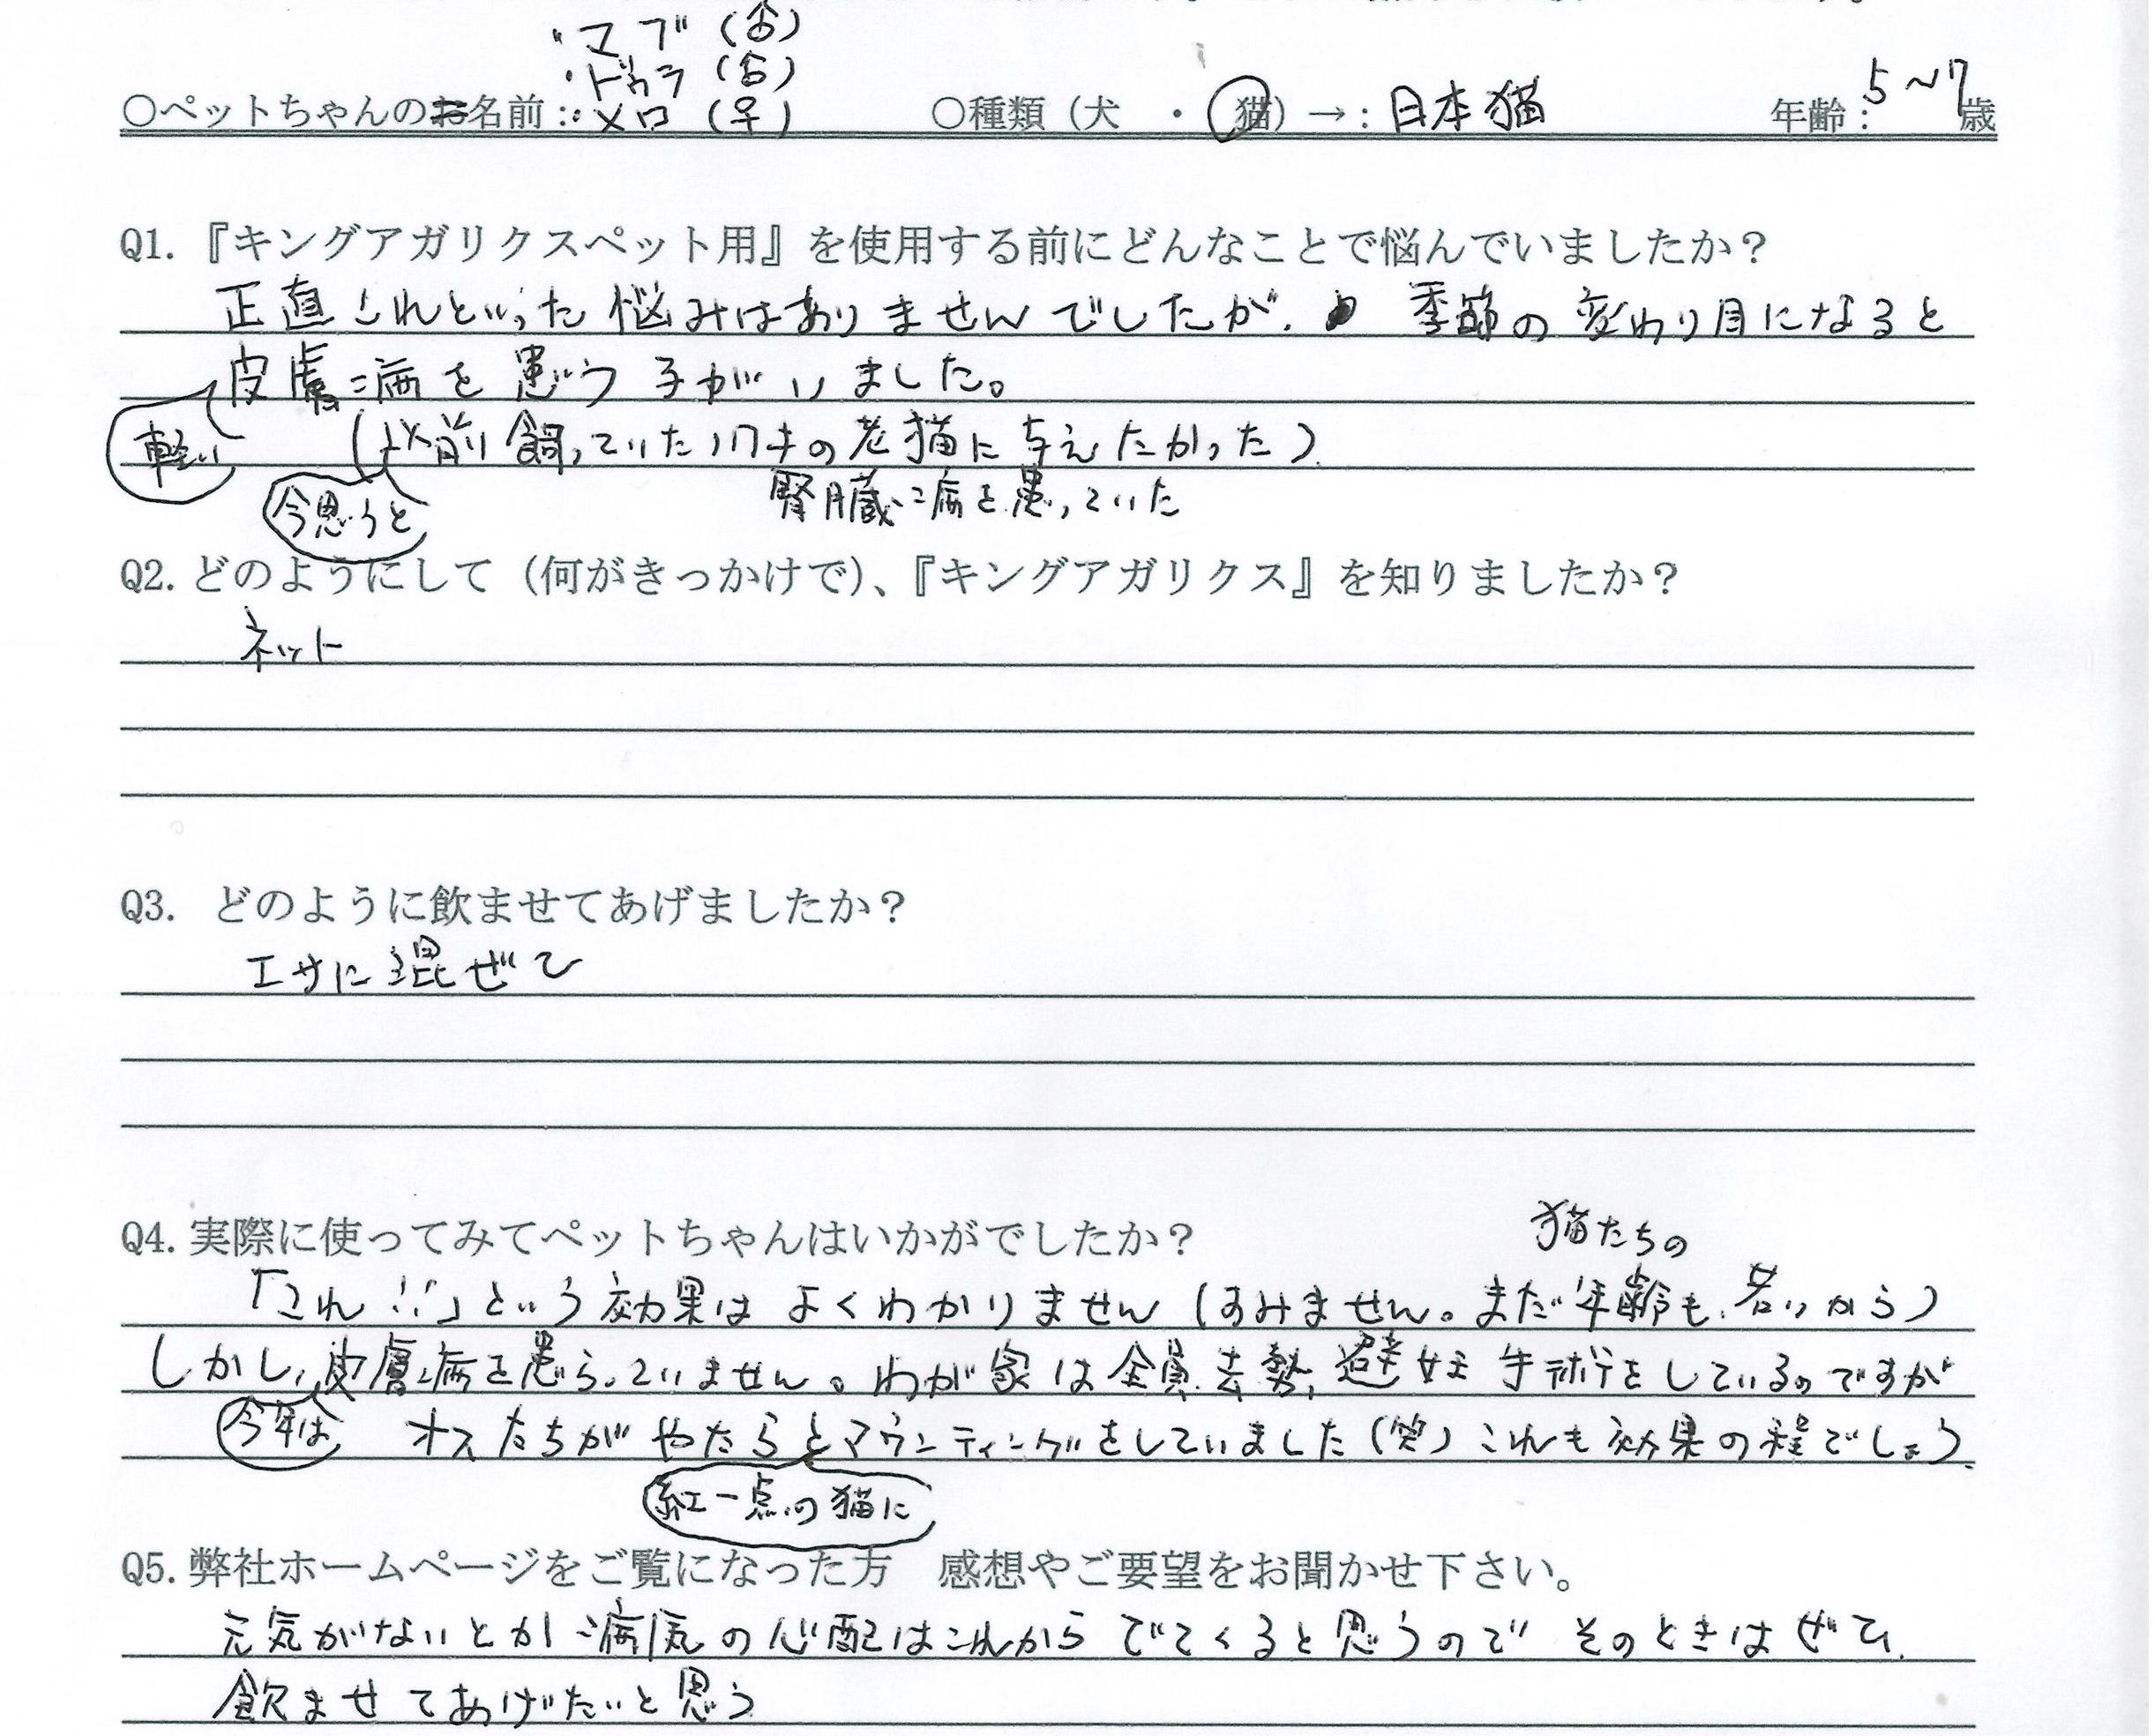 ・マブ（♂）
・ドゥラ（♂）
○ペットちゃんのお名前：・メロ（♀）　○種類（犬　・　猫）→：日本猫　年齢：5～7歳
Q1.『キングアガリクスペット用』を使用する前にどんなことで悩んでいましたか？
正直これといった悩みはありませんでしたが、季節の変わり目になると
皮膚病を患う子がいました。
軽い　（以前飼っていた17才の老猫に与えたかった）
今思うと　腎臓病を患っていた
Q2.どのようにして（何がきっかけで）、『キングアガリクス』を知りましたか？
ネット
Q3. どのように飲ませてあげましたか？
エサに混ぜて
Q4.実際に使ってみてペットちゃんはいかがでしたか？　猫たちの
「これ!!」という効果はよくわかりません（すみません。まだ年齢も若いから）
しかし、皮膚病を患らっていません。わが家は全員去勢、避妊手術をしているのですが
今年は　オスたちがやたらとマウンティングをしていました（笑）これも効果の程でしょう。
紅一点の猫に
Q5.弊社ホームページをご覧になった方　感想やご要望をお聞かせ下さい。
元気がないとか病気の心配はこれからでてくると思うので そのときはぜひ、
飲ませてあげたいと思う